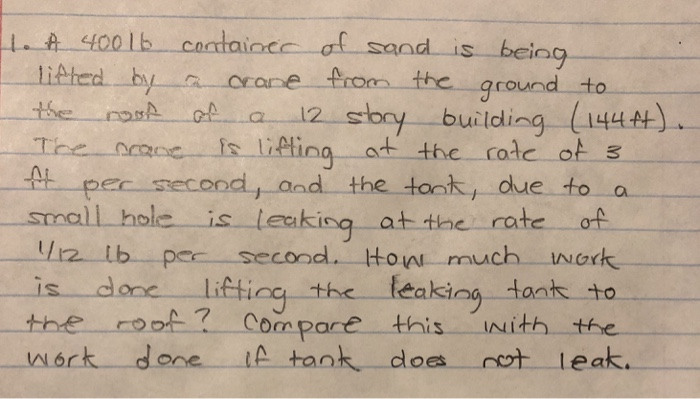 1. A 400 lb container of sand is being
lifted by a crane from the ground to
the roof of a 12 story building (144 ft).
The crane is lifting at the rate of 3
ft per second, and the tank, due to a
small hole is leaking at the rate of
1/12 lb per second. How much work
is done lifting the leaking tank to
the roof? Compare this with the
work done if tank does not leak.